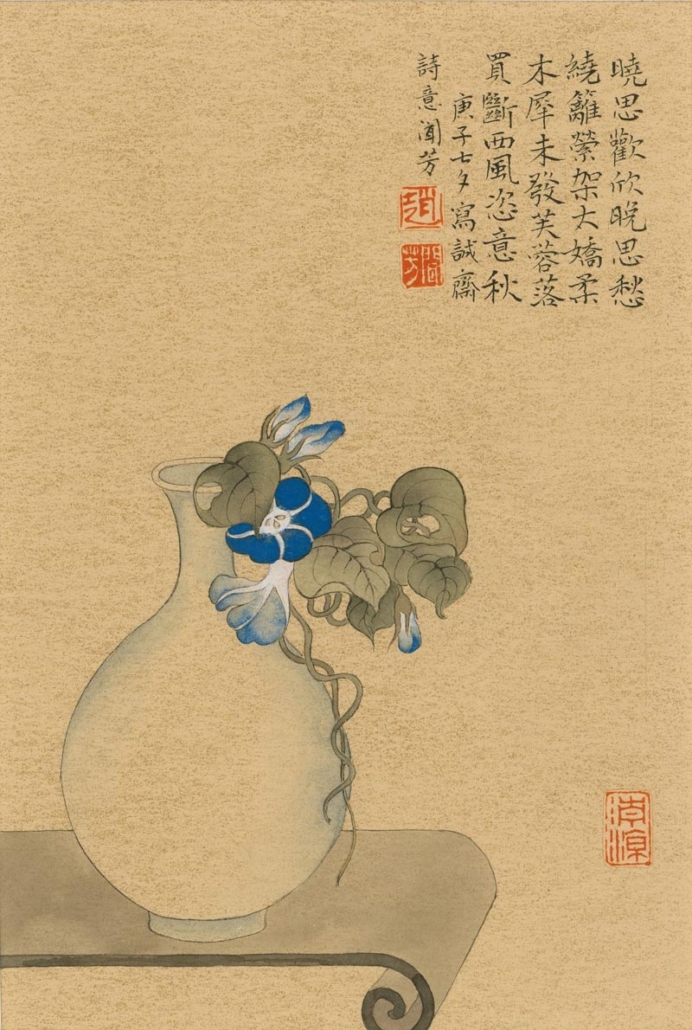 曉思歡欣晚思愁
繞籬縈架太嬌柔
木犀未發芙蓉落
買斷西風恣意秋
庚子七夕寫誠齋
詩意聞芳
趙
聞芳